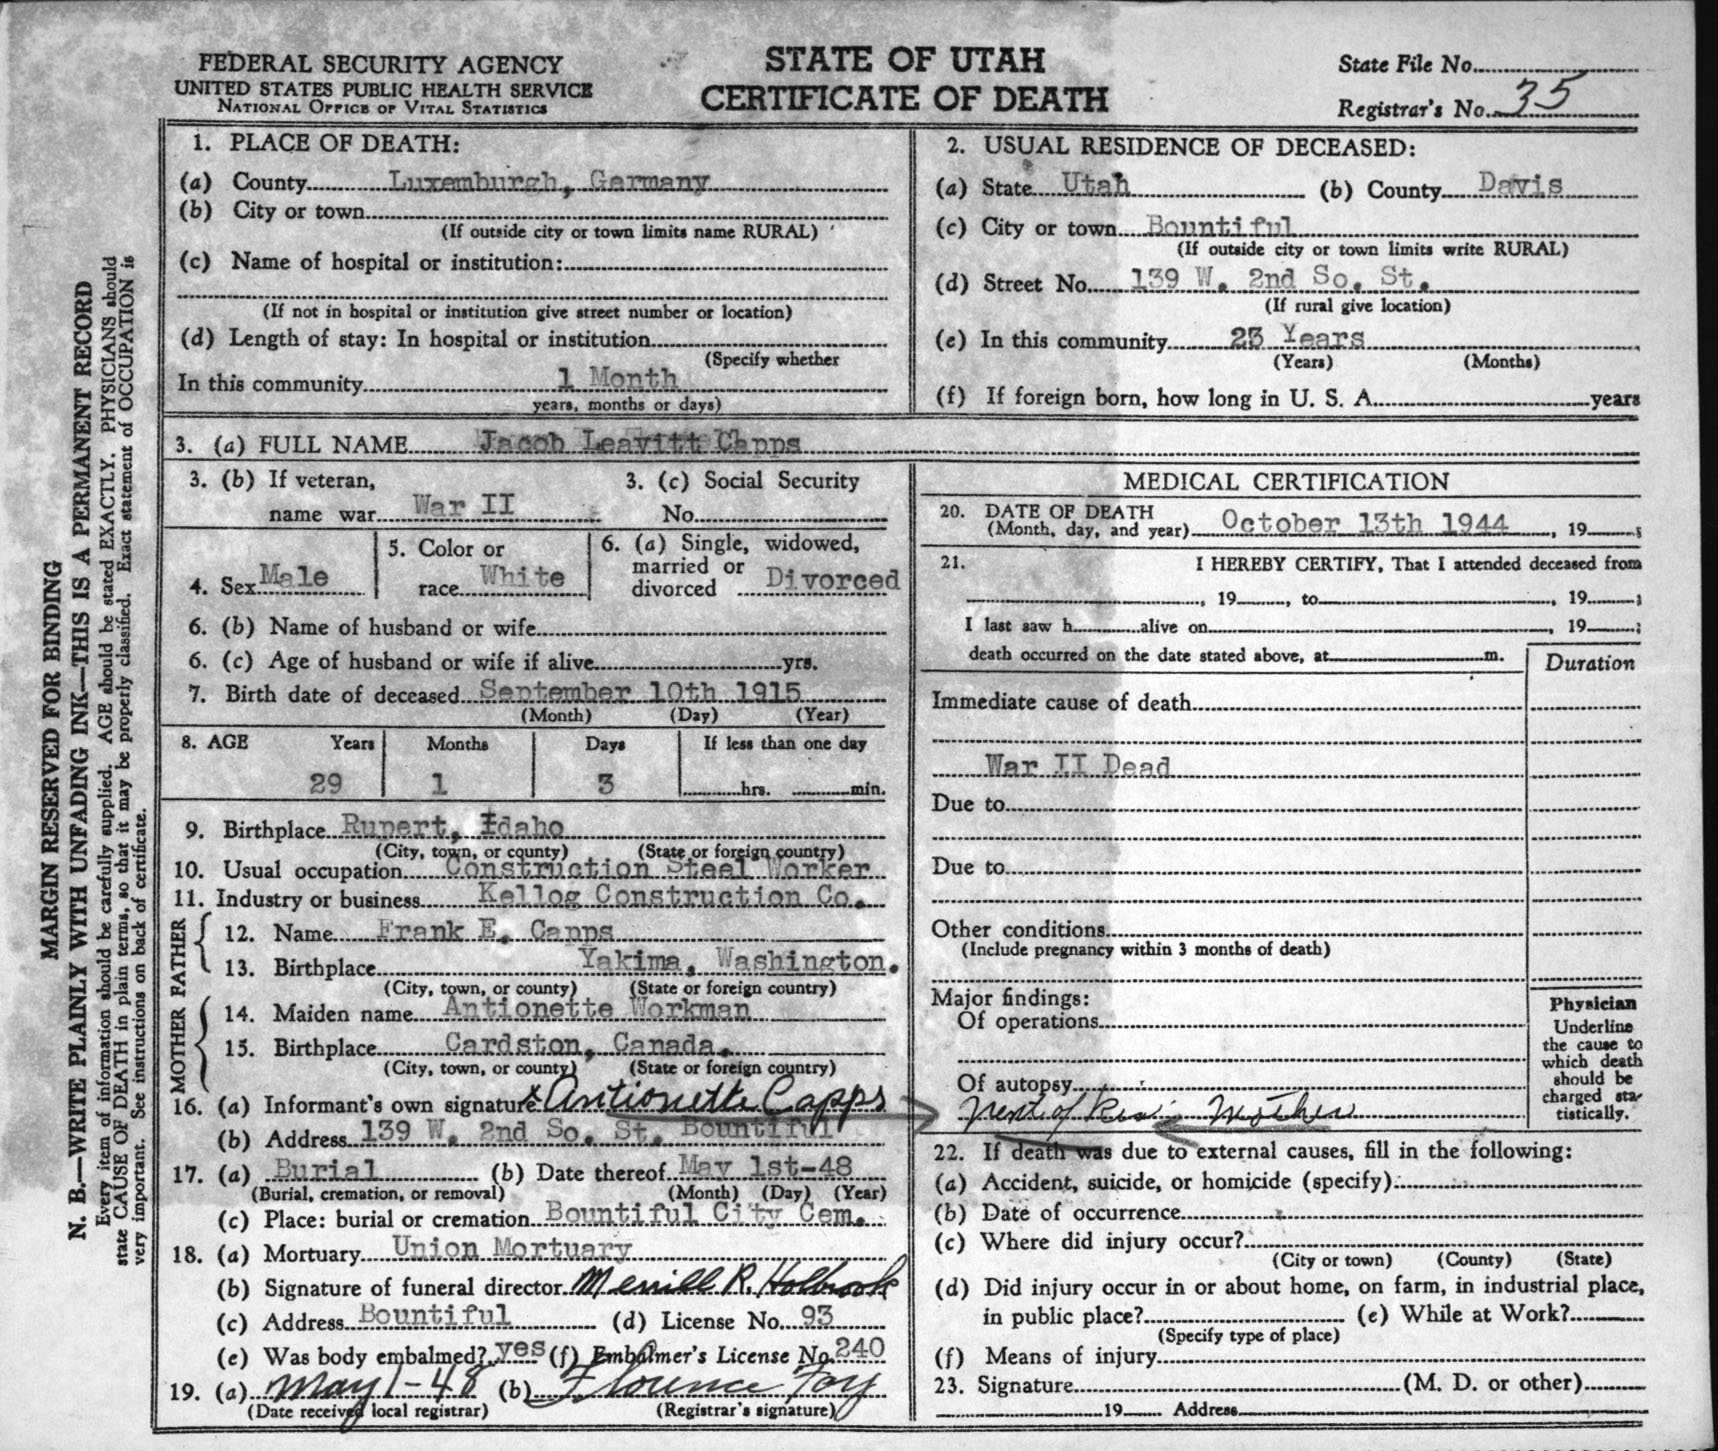 FEDERAL SECURITY AGENCY
UNITED STATES PUBLIC HEALTH SERVICE
NATIONAL OFFICE OF VITAL STATISTICS
STATE OF UTAH
CERTIFICATE OF DEATH
State File No.
Registrar's No. 35
MARGIN RESERVED FOR BINDING
N. B.—WRITE PLAINLY WITH UNFADING INK—THIS IS A PERMANENT RECORD
Every item of information should be carefully supplied. AGE should be stated EXACTLY. PHYSICIANS should
state CAUSE OF DEATH in plain terms, so that it may be properly classified. Exact statement of OCCUPATION is
very important. See instructions on back of certificate.
1. PLACE OF DEATH:
(a) County Luxemburgh, Germany
(b) City or town
(If outside city or town limits name RURAL)
(c) Name of hospital or institution:
(If not in hospital or institution give street number or location)
(d) Length of stay: In hospital or institution
(Specify whether
In this community 1 Month
years, months or days)
2. USUAL RESIDENCE OF DECEASED:
(a) State Utah (b) County Davis
(c) City or town Bountiful
(If outside city or town limits write RURAL)
(d) Street No. 139 W. 2nd So. St.
(If rural give location)
(e) In this community 23 Years
(Years) (Months)
(f) If foreign born, how long in U. S. A. years
3. (a) FULL NAME Jacob Leavitt Capps
3. (b) If veteran,
name war War II
3. (c) Social Security
No.
4. Sex Male
5. Color or
race White
6. (a) Single, widowed,
married or
divorced Divorced
6. (b) Name of husband or wife
6. (c) Age of husband or wife if alive yrs.
7. Birth date of deceased September 10th 1915
(Month) (Day) (Year)
8. AGE Years Months Days If less than one day
29 1 3 hrs. min.
9. Birthplace Rupert, Idaho
(City, town, or county) (State or foreign country)
10. Usual occupation Construction Steel Worker
11. Industry or business Kellog Construction Co.
FATHER
12. Name Frank E. Capps
13. Birthplace Yakima, Washington.
(City, town, or county) (State or foreign country)
MOTHER
14. Maiden name Antionette Workman
15. Birthplace Cardston, Canada.
(City, town, or county) (State or foreign country)
16. (a) Informant's own signature x Antionette Capps
(b) Address 139 W. 2nd So. St. Bountiful
17. (a) Burial (b) Date thereof May 1st-48
(Burial, cremation, or removal) (Month) (Day) (Year)
(c) Place: burial or cremation Bountiful City Cem.
18. (a) Mortuary Union Mortuary
(b) Signature of funeral director Merrill R. Holbrook
(c) Address Bountiful (d) License No. 93
(e) Was body embalmed? yes (f) Embalmer's License No. 240
19. (a) May 1-48 (b) Florence Foy
(Date received local registrar) (Registrar's signature)
MEDICAL CERTIFICATION
20. DATE OF DEATH
(Month, day, and year) October 13th 1944, 19
21. I HEREBY CERTIFY, That I attended deceased from
, 19 , to , 19 ;
I last saw h alive on , 19 ;
death occurred on the date stated above, at m.
Duration
Immediate cause of death
War II Dead
Due to
Due to
Other conditions
(Include pregnancy within 3 months of death)
Major findings:
Of operations
Of autopsy
Physician
Underline
the cause to
which death
should be
charged sta-
tistically.
Next of Kin: Mother
22. If death was due to external causes, fill in the following:
(a) Accident, suicide, or homicide (specify)
(b) Date of occurrence
(c) Where did injury occur?
(City or town) (County) (State)
(d) Did injury occur in or about home, on farm, in industrial place,
in public place? (e) While at Work?
(Specify type of place)
(f) Means of injury
23. Signature (M. D. or other)
19 Address